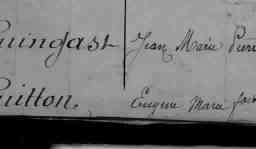 uingast Jean Marie Pierre
uitton. Eugène Marie